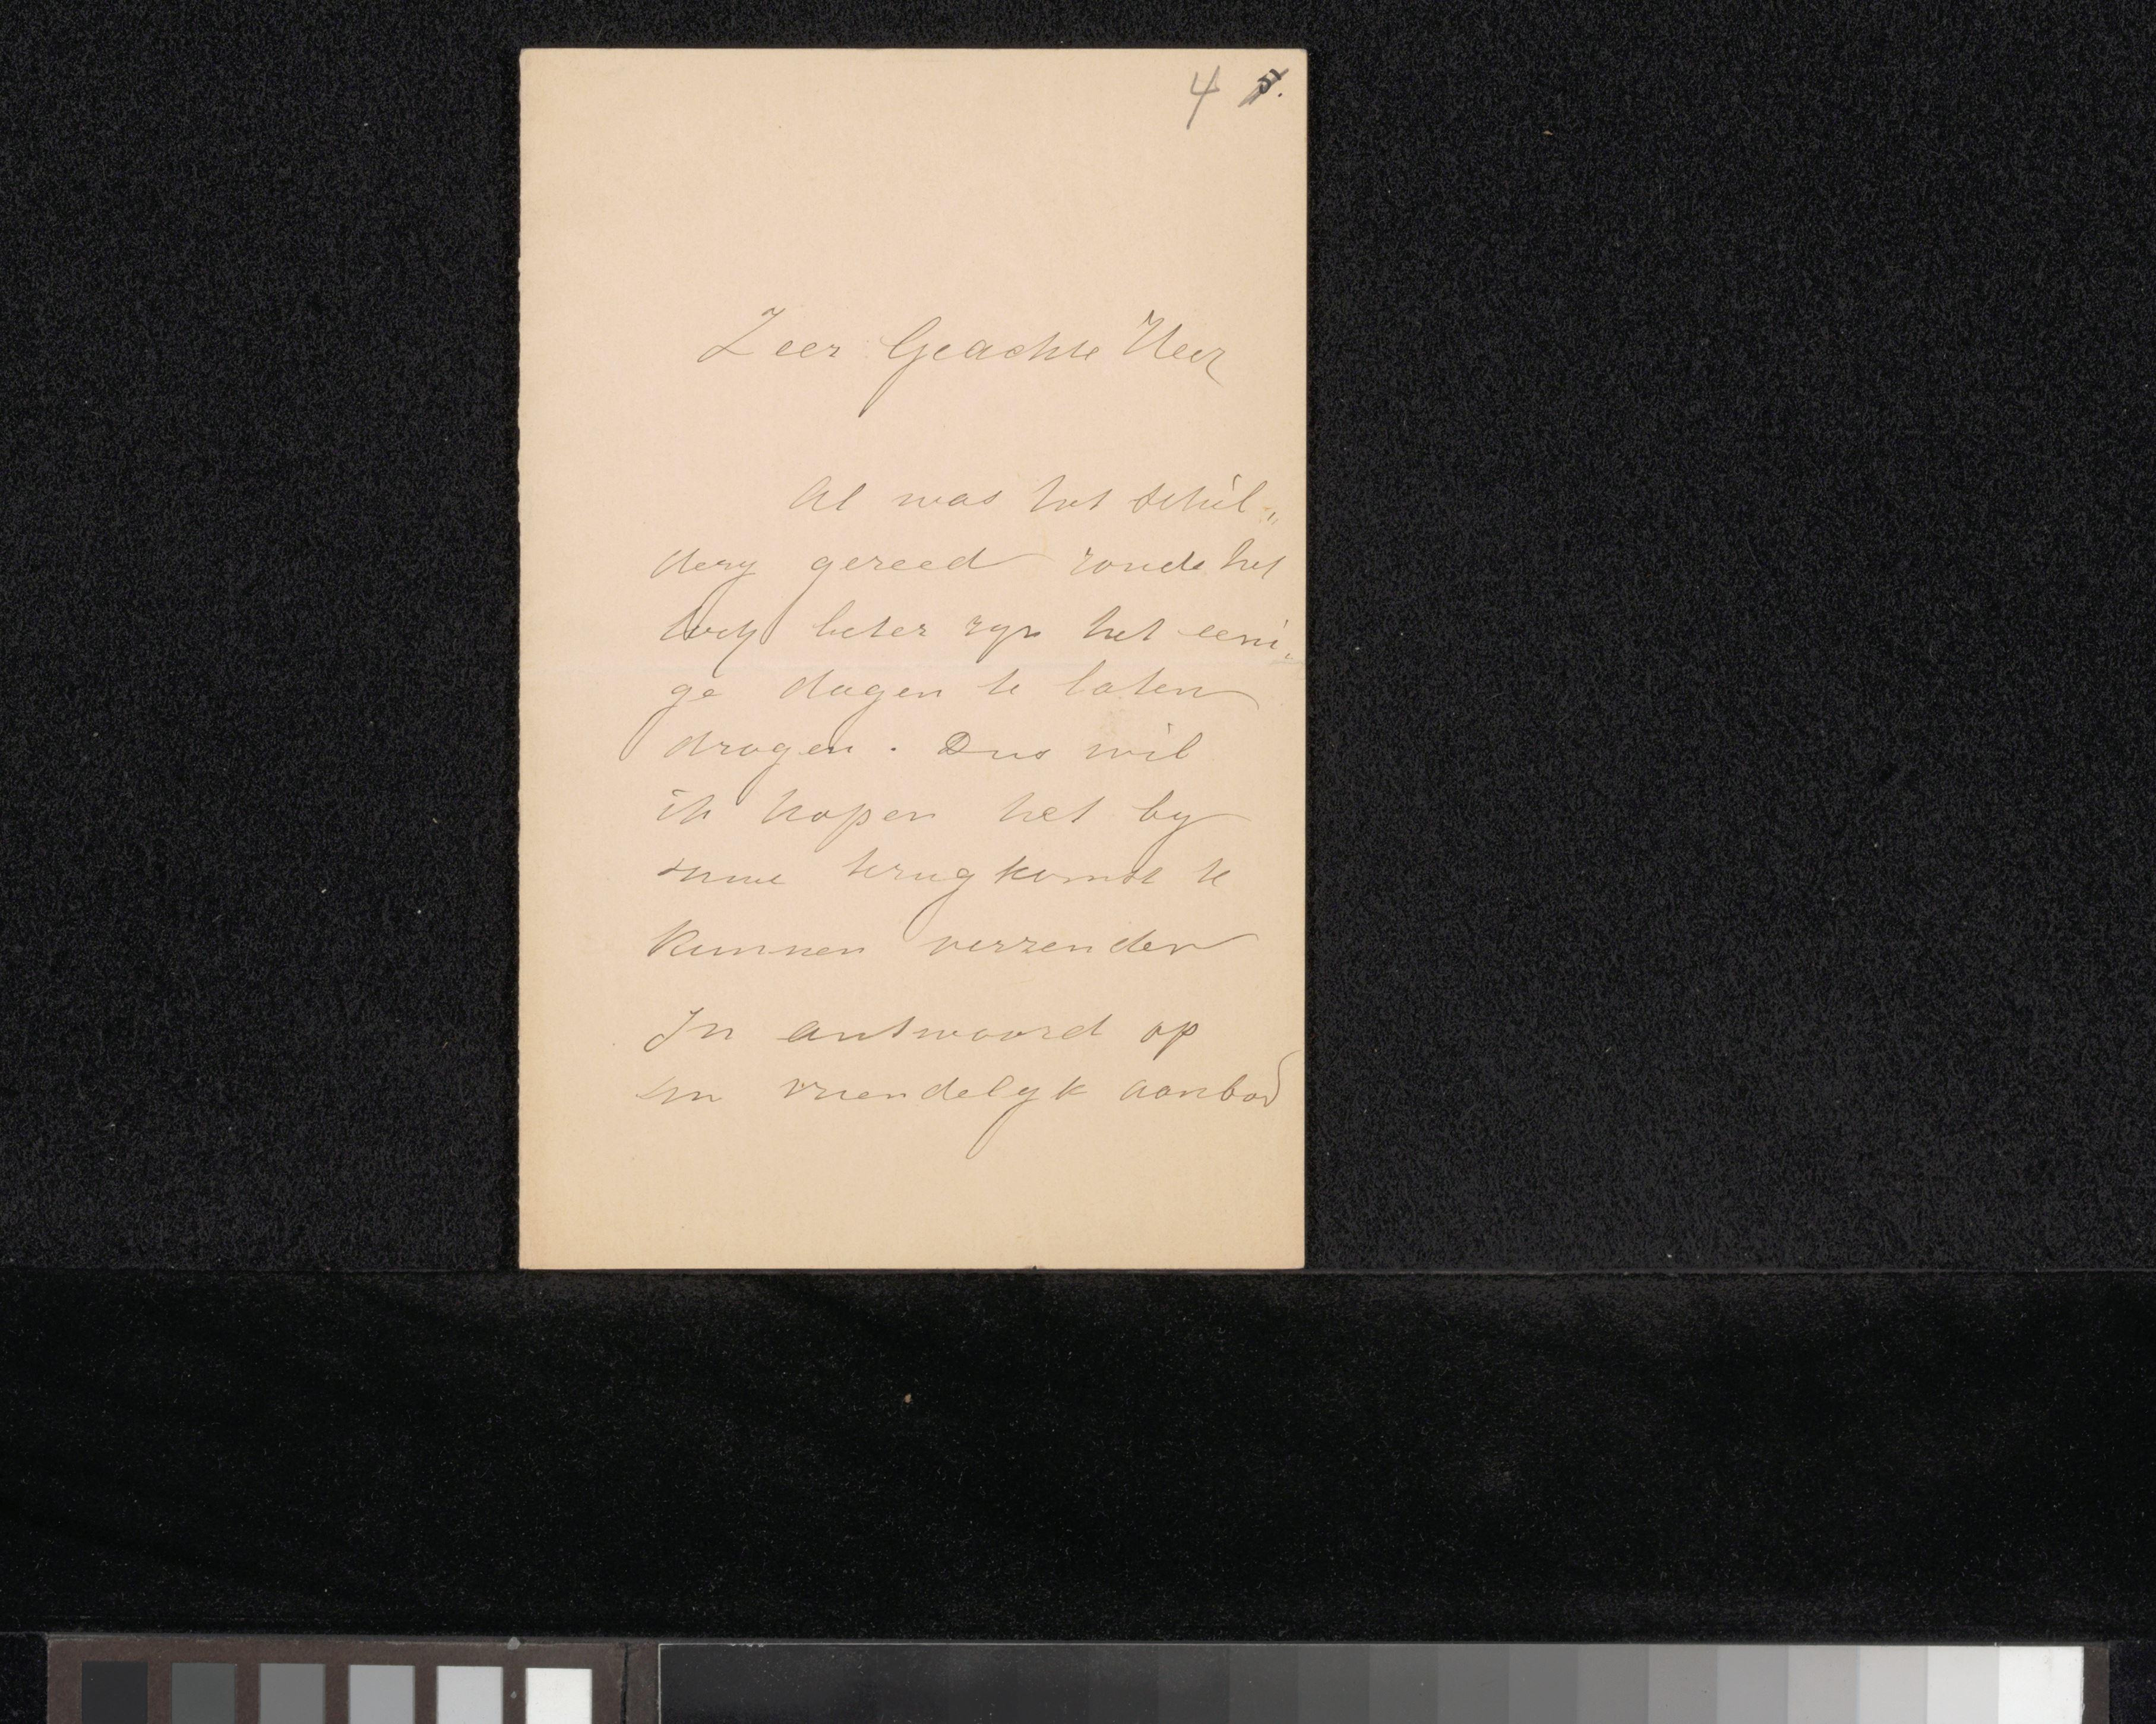 4 5.
Zeer Geachte Heer
Al was het schil„
dery gereed zoude het
toch beter zyn het eeni„
ge dagen te laten
drogen. Dus wil
ik hopen het by
uwe terugkomst te
kunnen verzenden
In antwoord op
uw vriendelyk aanbod